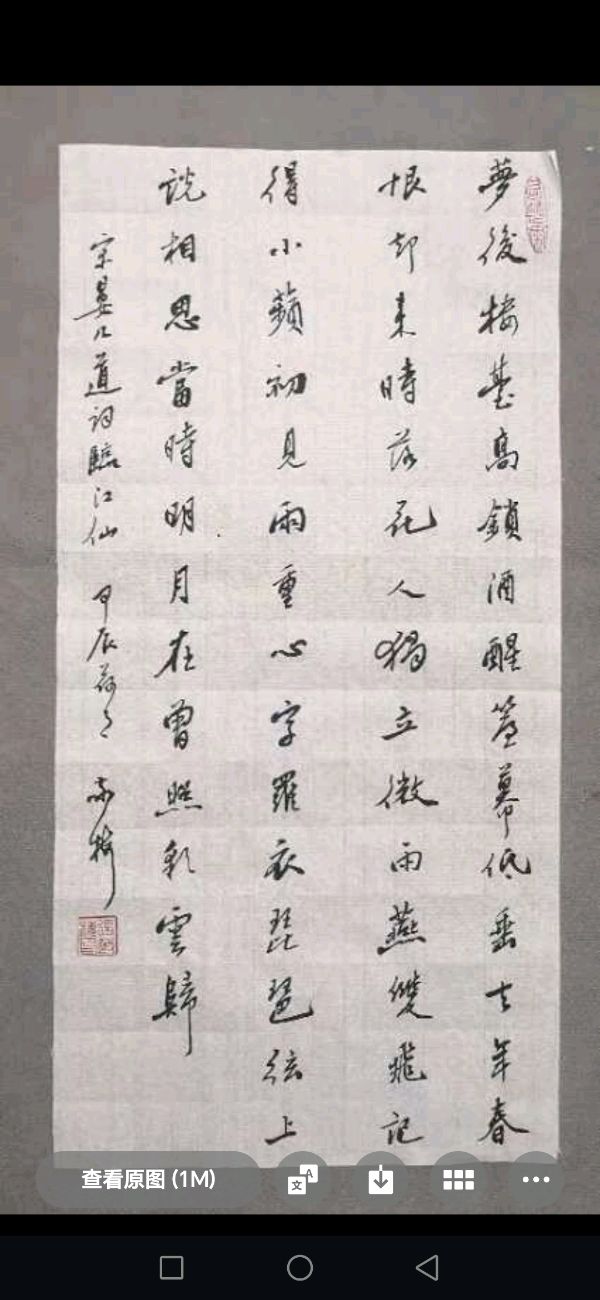 夢後樓臺高鎖酒醒簾幕低垂去年春
恨却来時落花人獨立微雨燕雙飛記
得小蘋初見兩重心字羅衣琵琶絃上
説相思當時明月在曾照彩雲歸
宋晏几道詞臨江仙 甲辰荷月
查看原图 (1M)